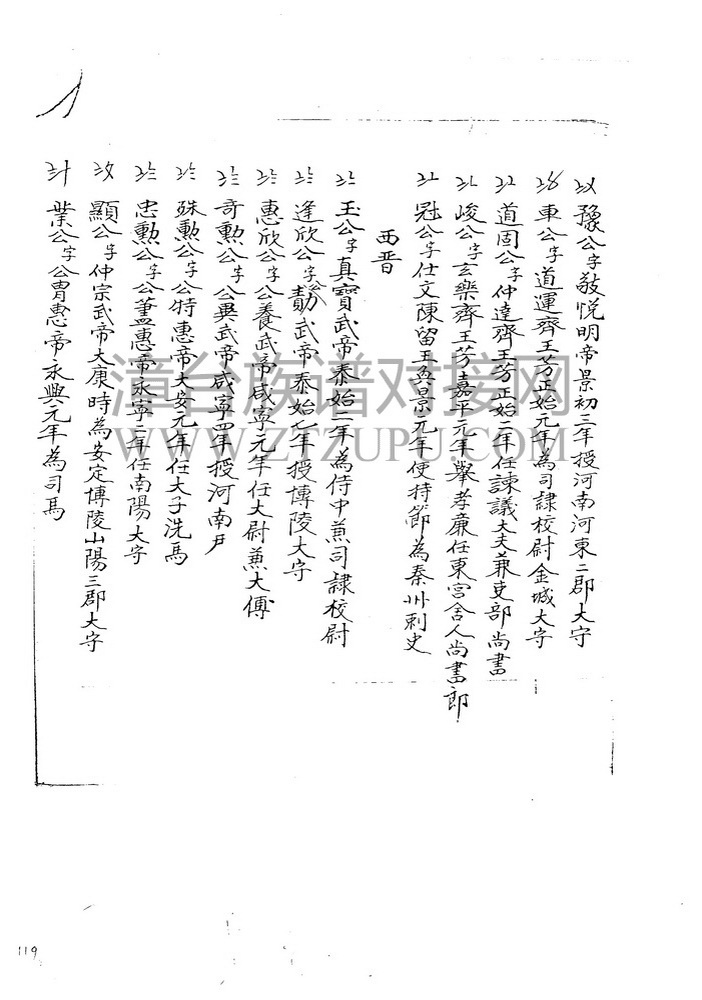 豫公字敬悅明帝景初三年授河南河東二郡大守
車公字道運齊王芳正始元年為司隸校尉金城大守
道固公字仲達齊王芳正始二年任諫議大夫兼吏部尚書
峻公字玄樂齊王芳嘉平元年舉孝廉任東宮舍人尚書郎
冠公字仕文陳留王奐景元年使持節為秦州刺史
西晋
玉公字真寶武帝泰始二年為侍中兼司隸校尉
逢欣公字公勣武帝泰始七年授博陵大守
惠欣公字公養武帝咸寧元年任大尉兼大傅
奇勲公字公異武帝咸寧四年授河南尹
殊勲公字公特惠帝大安元年任大子洗馬
忠勲公字公藎惠帝永寧二年任南陽大守
顯公字仲宗武帝大康時為安定博陵山陽三郡大守
業公字公胄惠帝永興元年為司馬
漳台族譜对接网
WWW.ZTZUPU.COM
119